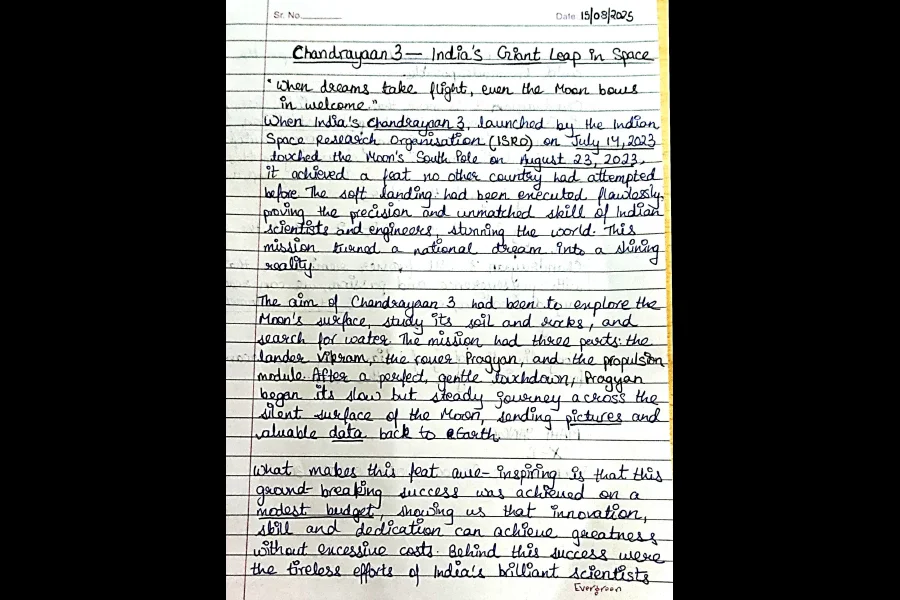 Sr. No.
Date 15/08/2025
Chandrayaan 3 — India's Giant Leap in Space
"When dreams take flight, even the Moon bows
in welcome."
When India's Chandrayaan 3, launched by the Indian
Space Research Organisation (ISRO) on July 14, 2023
touched the Moon's South Pole on August 23, 2023,
it achieved a feat no other country had attempted
before The soft landing had been executed flawlessly,
proving the precision and unmatched skill of Indian
scientists and engineers, stunning the world. This
mission turned a national dream into a shining
reality.
The aim of Chandrayaan 3 had been to explore the
Moon's surface, study its soil and rocks, and
search for water The mission had three parts: the
lander Vikram, the rover Pragyan, and the propulsion
module. After a perfect, gentle touchdown, Pragyan
began its slow but steady journey across the
silent surface of the Moon, sending pictures and
valuable data back to Earth
What makes this feat awe-inspiring is that this
ground-breaking success was achieved on a
modest budget, showing us that innovation,
skill and dedication can achieve greatness
without excessive costs. Behind this success were
the tireless efforts of India's brilliant scientists
Evergreen